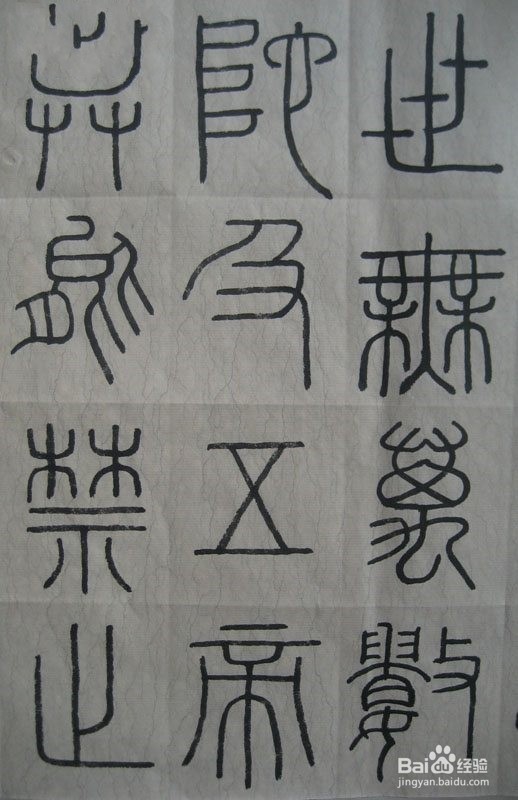 世無萬數
陀及五帝
莫能禁止
Baidu经验
jingyan.baidu.com